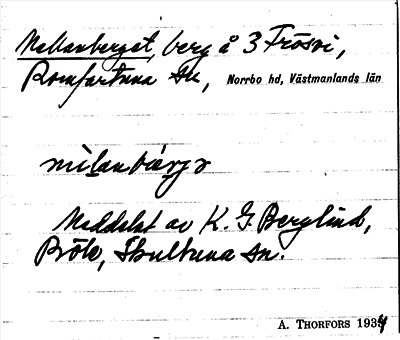 Mellanberget, berg å 3 Frösvi,
Romfartuna sn, Norrbo hd, Västmanlands län
Meddelat av K. G. Berglind,
Böle, Skultuna sn.
A. THORFORS 1934